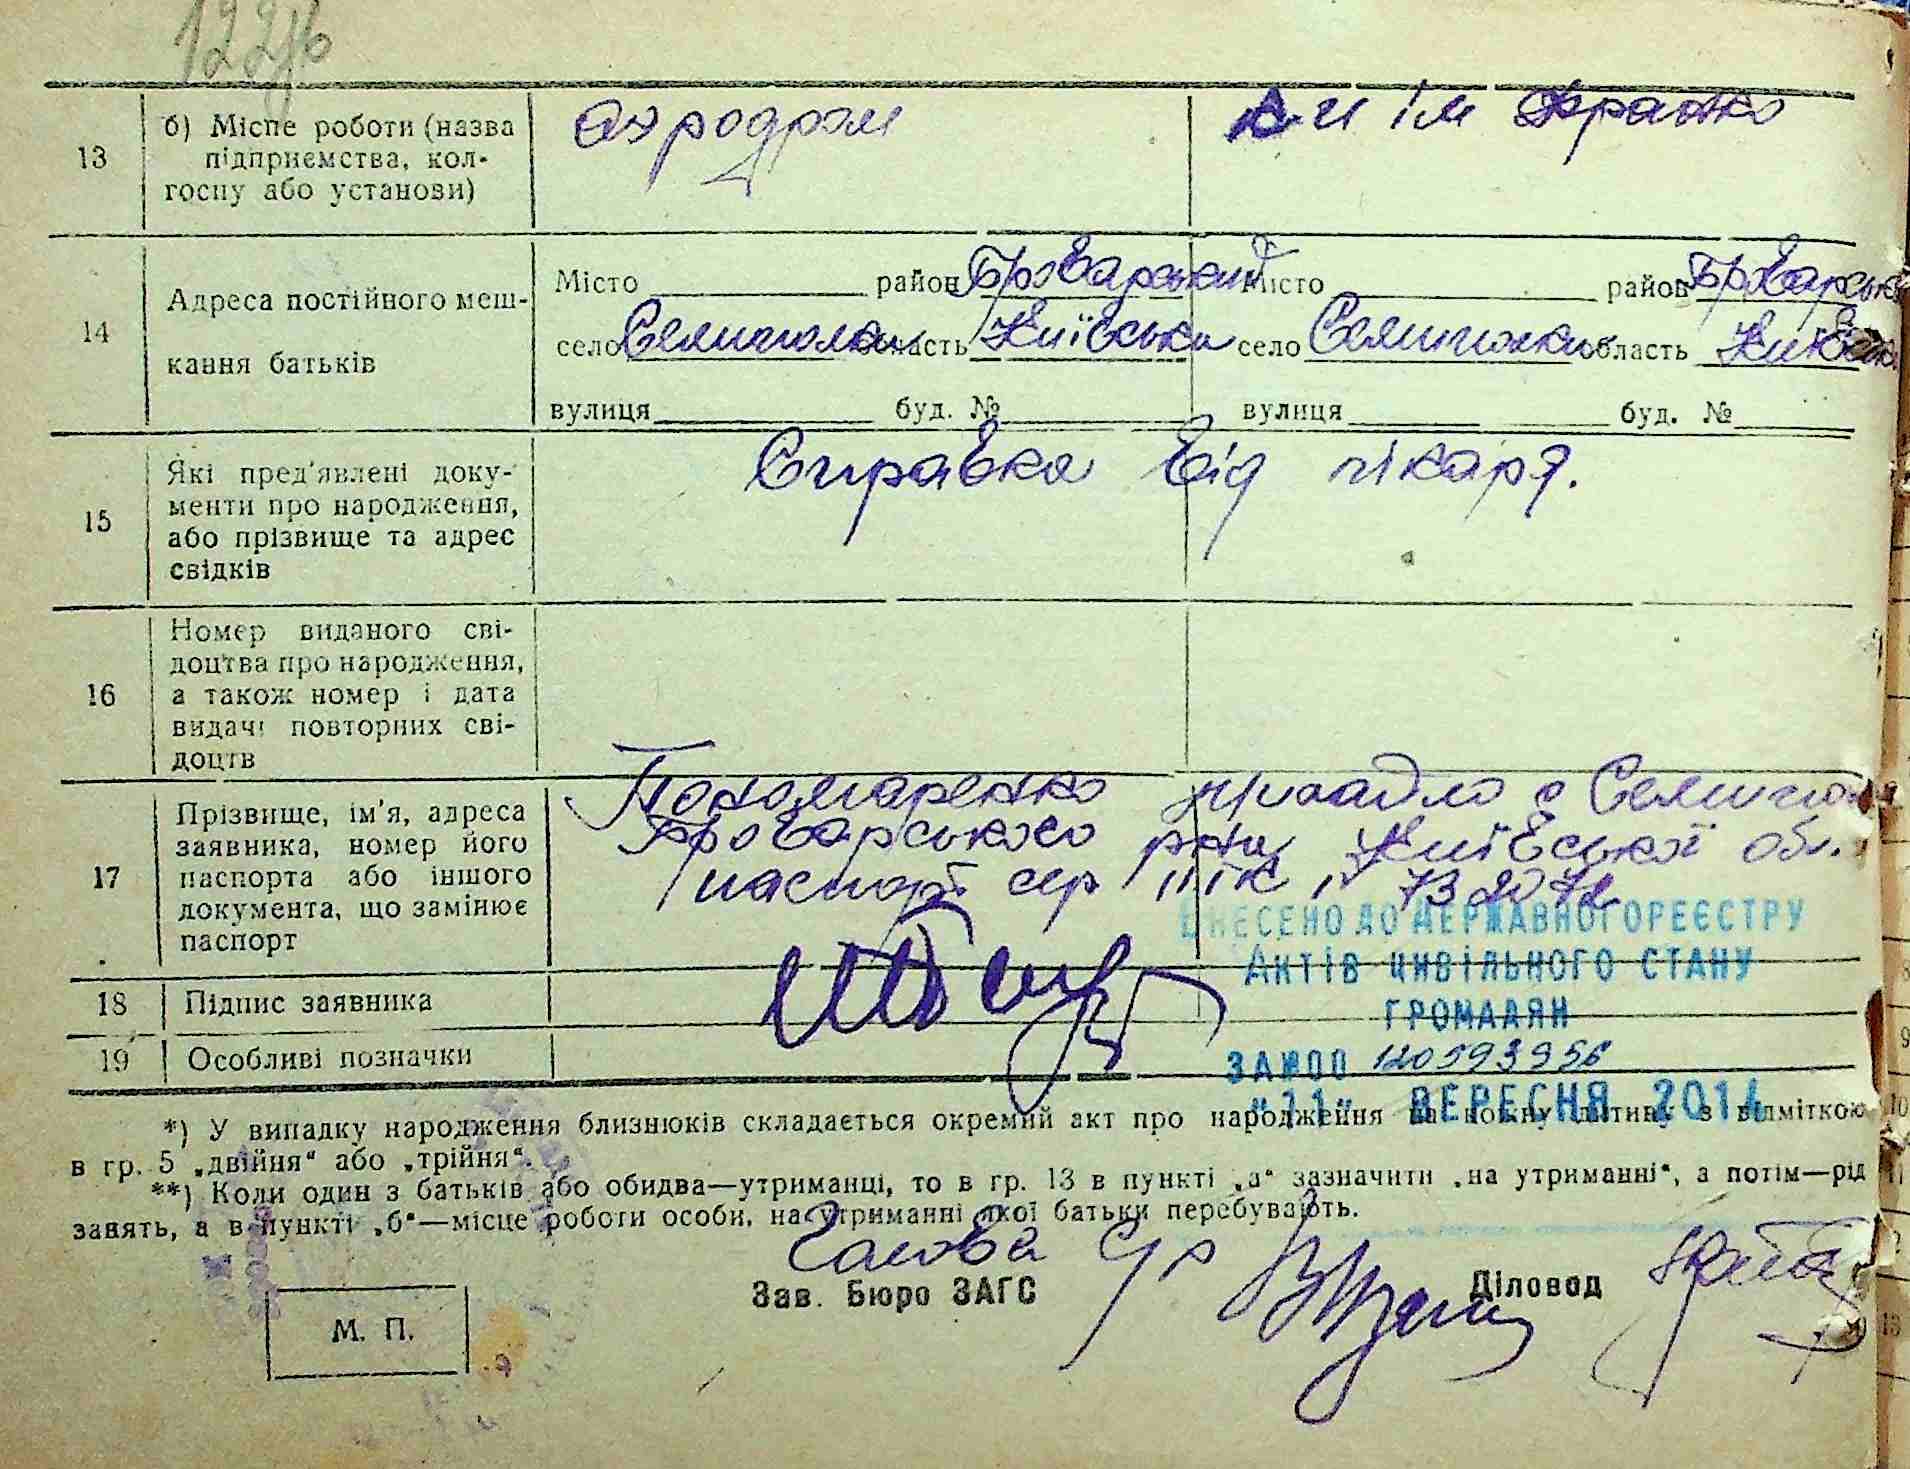 122
13 б) Місце роботи (назва підприємства, кол-
госпу або установи)
аэродром
к-п ім Франко
14 Адреса постійного меш-
кання батьків
Місто район Броварський Місто район Броварськ
село Семиполки область Київська село Семиполки область Київськ
вулиця буд. № вулиця буд. №
15 Які пред'явлені доку-
менти про народження,
або прізвище та адрес
свідків
Справка від лікаря.
16 Номер виданого сві-
доцтва про народження,
а також номер і дата
видачі повторних сві-
доцтв
17 Прізвище, ім'я, адреса
заявника, номер його
паспорта або іншого
документа, що замінює
паспорт
Пономаренко с Семипол
Броварського р-ну Київської обл.
паспорт сер
ВНЕСЕНО ДО ДЕРЖАВНОГО РЕЄСТРУ
АКТІВ ЦИВІЛЬНОГО СТАНУ
ГРОМАДЯН
18 Підпис заявника
19 Особливі позначки
ЗА №00 120593956
"11" ВЕРЕСНЯ 2014
*) У випадку народження близнюків складається окремий акт про народження на кожну дитину з відміткою
в гр. 5 „двійня“ або „трійня“.
**) Коли один з батьків або обидва—утриманці, то в гр. 13 в пункті „а“ зазначити „на утриманні“, а потім—рід
занять, а в пункті „б“—місце роботи особи, на утриманні якої батьки перебувають.
Голова с/р
Зав. Бюро ЗАГС Діловод
М. П.